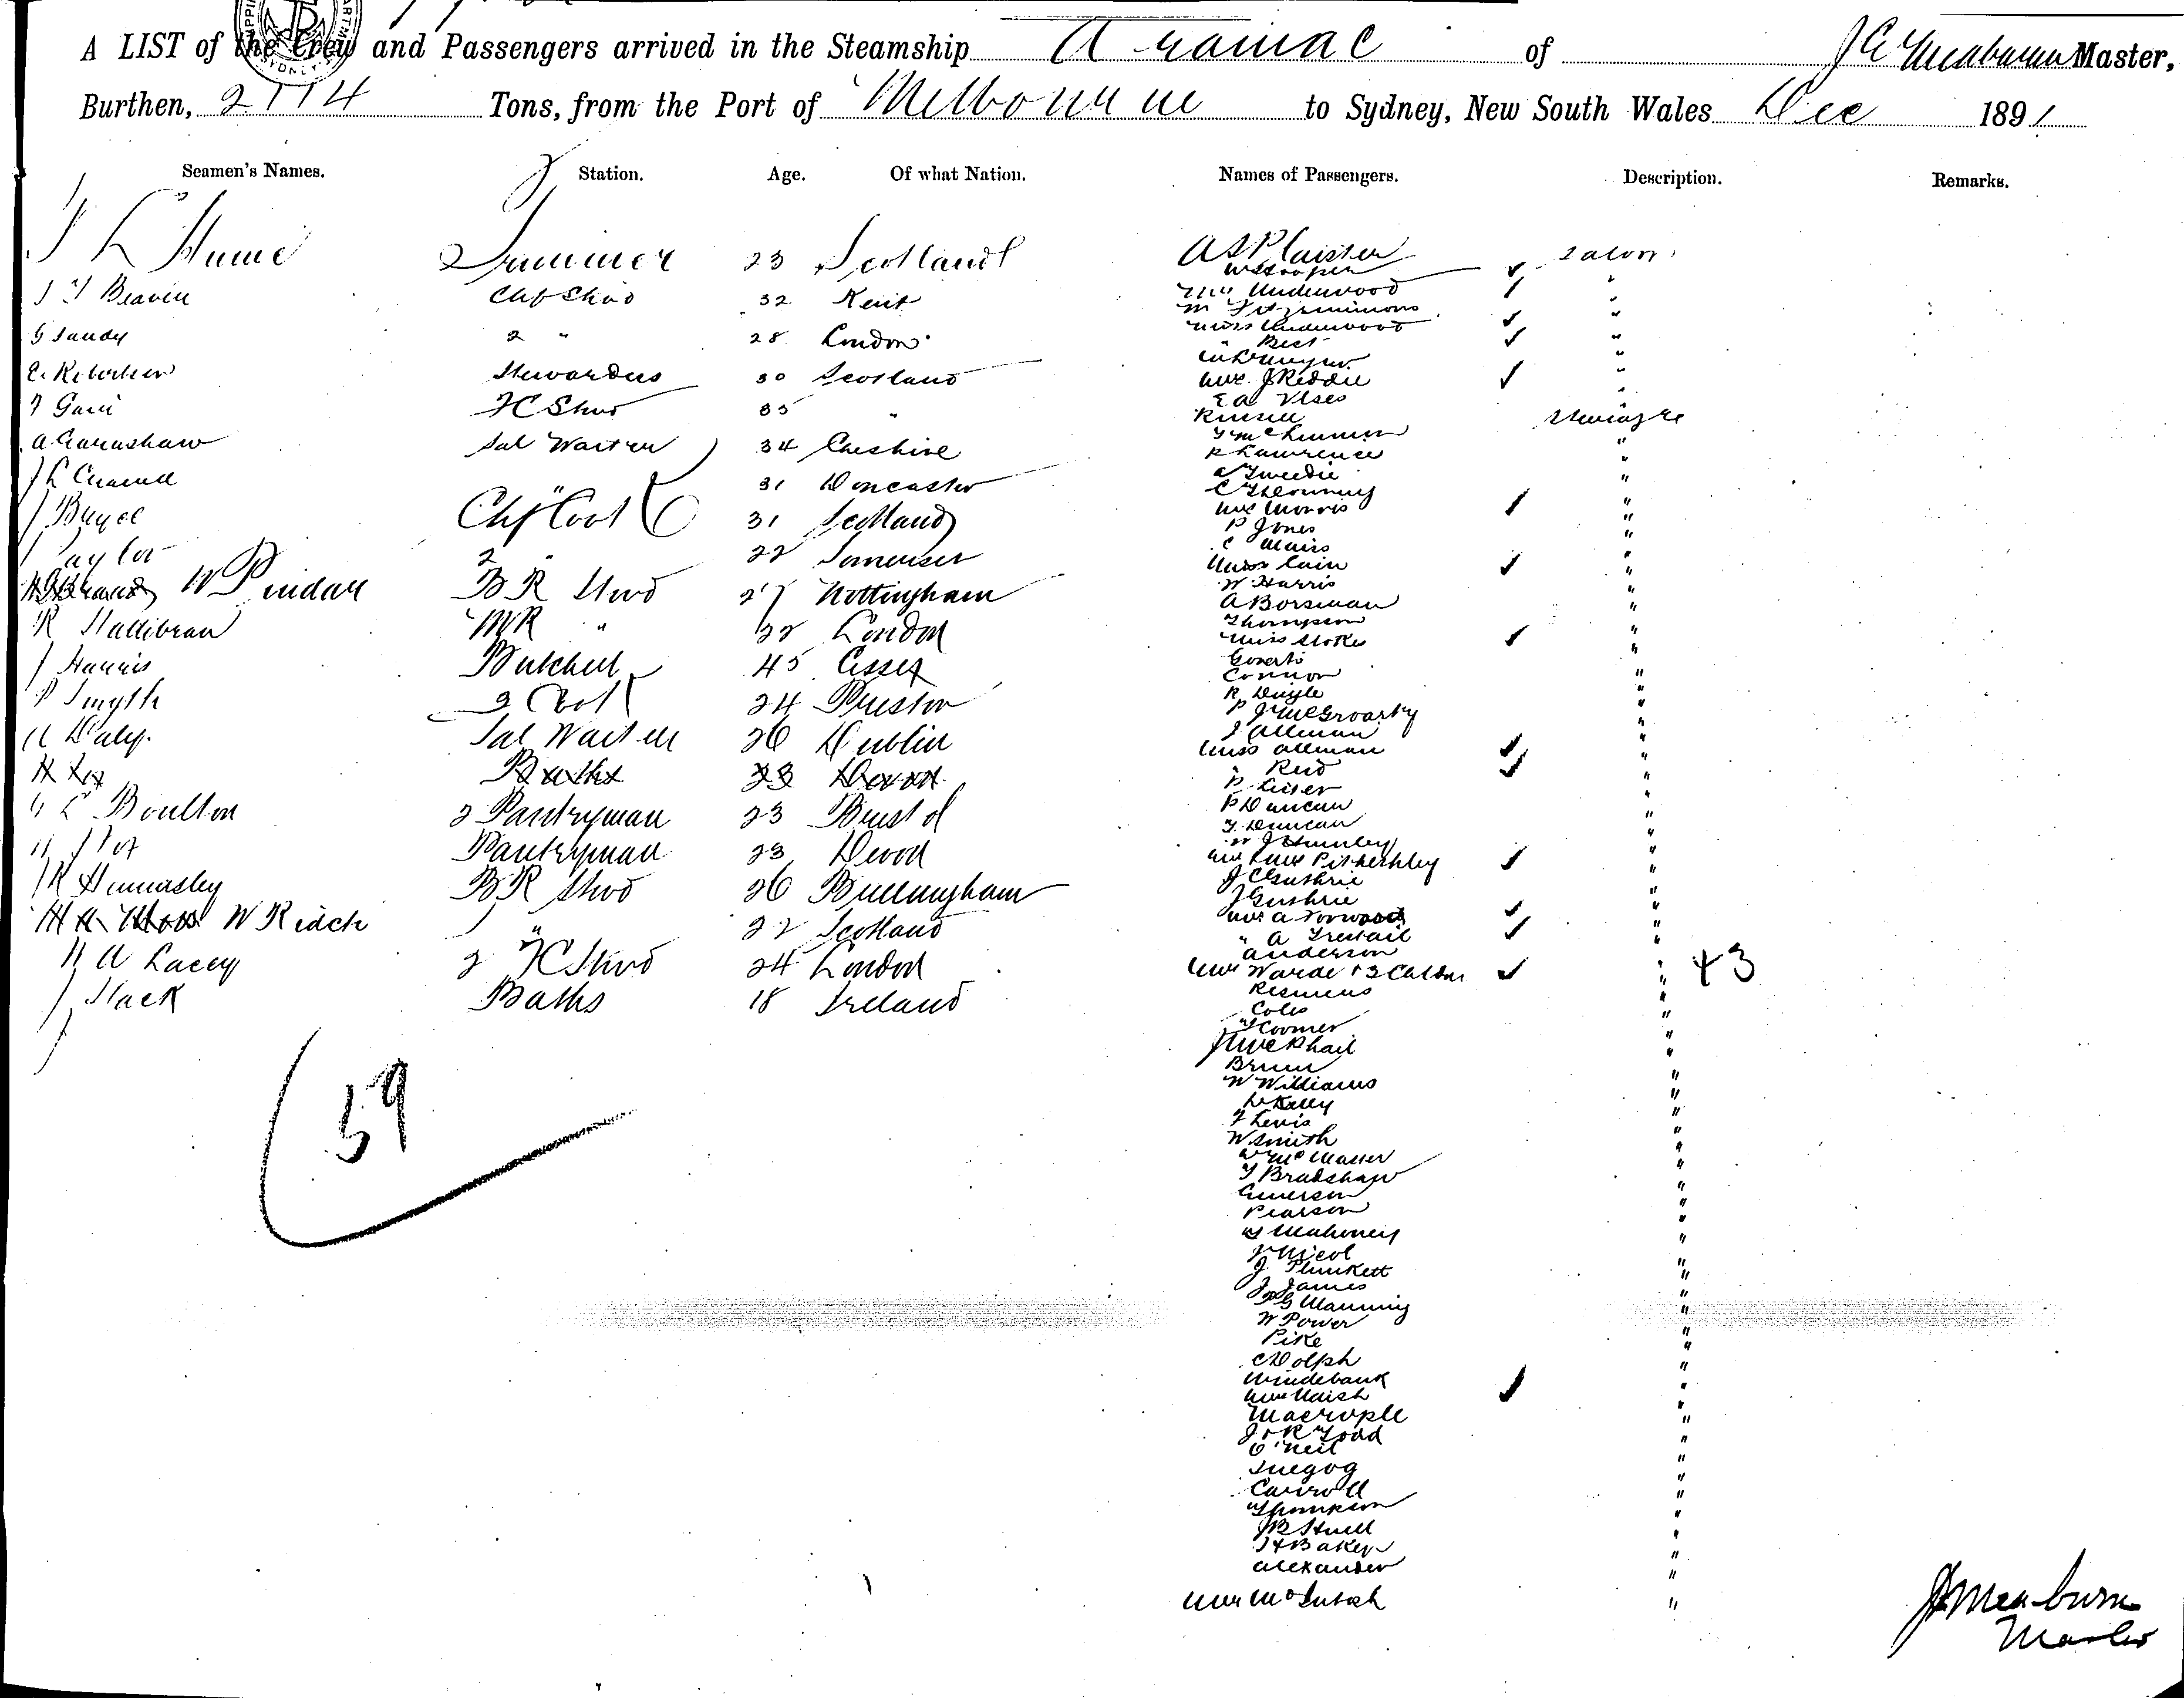 A LIST of the Crew and Passengers arrived in the Steamship Aramac of J E Meaburn Master,
Burthen, 2114 Tons, from the Port of Melbourne to Sydney, New South Wales Dec 1891
Seamen's Names. Station. Age. Of what Nation. Names of Passengers. Description. Remarks.
J L Hume Trimmer 23 Scotland
J T Beavin Chf Stwd 32 Kent
G Sandy 2 " 28 London
Stewardess 30 Scotland
FC Stwd 35 "
A. Earnshaw Sal Waiter 34 Cheshire
" 31 Doncaster
J Bryce Chf Cook 31 Scotland
J Taylor 2 " 22 Somerset
W Pindar BR Stwd 27 Nottingham
R Hallibran MR " 32 London
J Harris Butcher 45 Essex
P Smyth 3 Cook 24 Preston
Daly. Sal Waiter 26 Dublin
Baths 23 Devon
L Boulton 2 Pantryman 23 Bristol
Pantryman 23 Devon
J R Hemmsley BR Stwd 26 Birmingham
W Ridch " 22 Scotland
H A Lacey 2 FC Stwd 24 London
J Slack Baths 18 Ireland
59
A S Plaister Saloon
W S Cooper "
Mrs Underwood "
M Fitzsimmons "
Miss Underwood "
" Best "
Mrs J Reddie "
E A Vises "
Russell Steerage
R Lawrence "
A Tweedie "
C T Downing "
Mrs Morris "
P Jones "
C Mairs "
Miss Cain "
W Harris "
A Borsman "
Thompson "
Miss Stokes "
Connor "
R Doyle "
P J McGroarty "
J Allman "
Miss Allman "
" Reid "
P Duncan "
T Duncan "
J C Guthrie "
J Guthrie "
Mrs A Norwood "
" A Tresail "
Anderson "
Mrs Warde + 3 Caldn " +3
Coles "
T Coomer "
J McPhail "
W Williams "
D Kelly "
F Lewis "
W Smith "
T Bradshaw "
Emerson "
Pearson "
Mahoney "
J Nicol "
J. Plunkett "
J James "
G Manning "
W Power "
Pike "
C Dolph "
Windebank "
Mrs Naish "
Macropll "
J & R Todd "
O'Neil "
Carroll "
Thompson "
J B Stuell "
J H Baker "
Alexander "
Mrs McIntosh "
J E Meaburn
Master